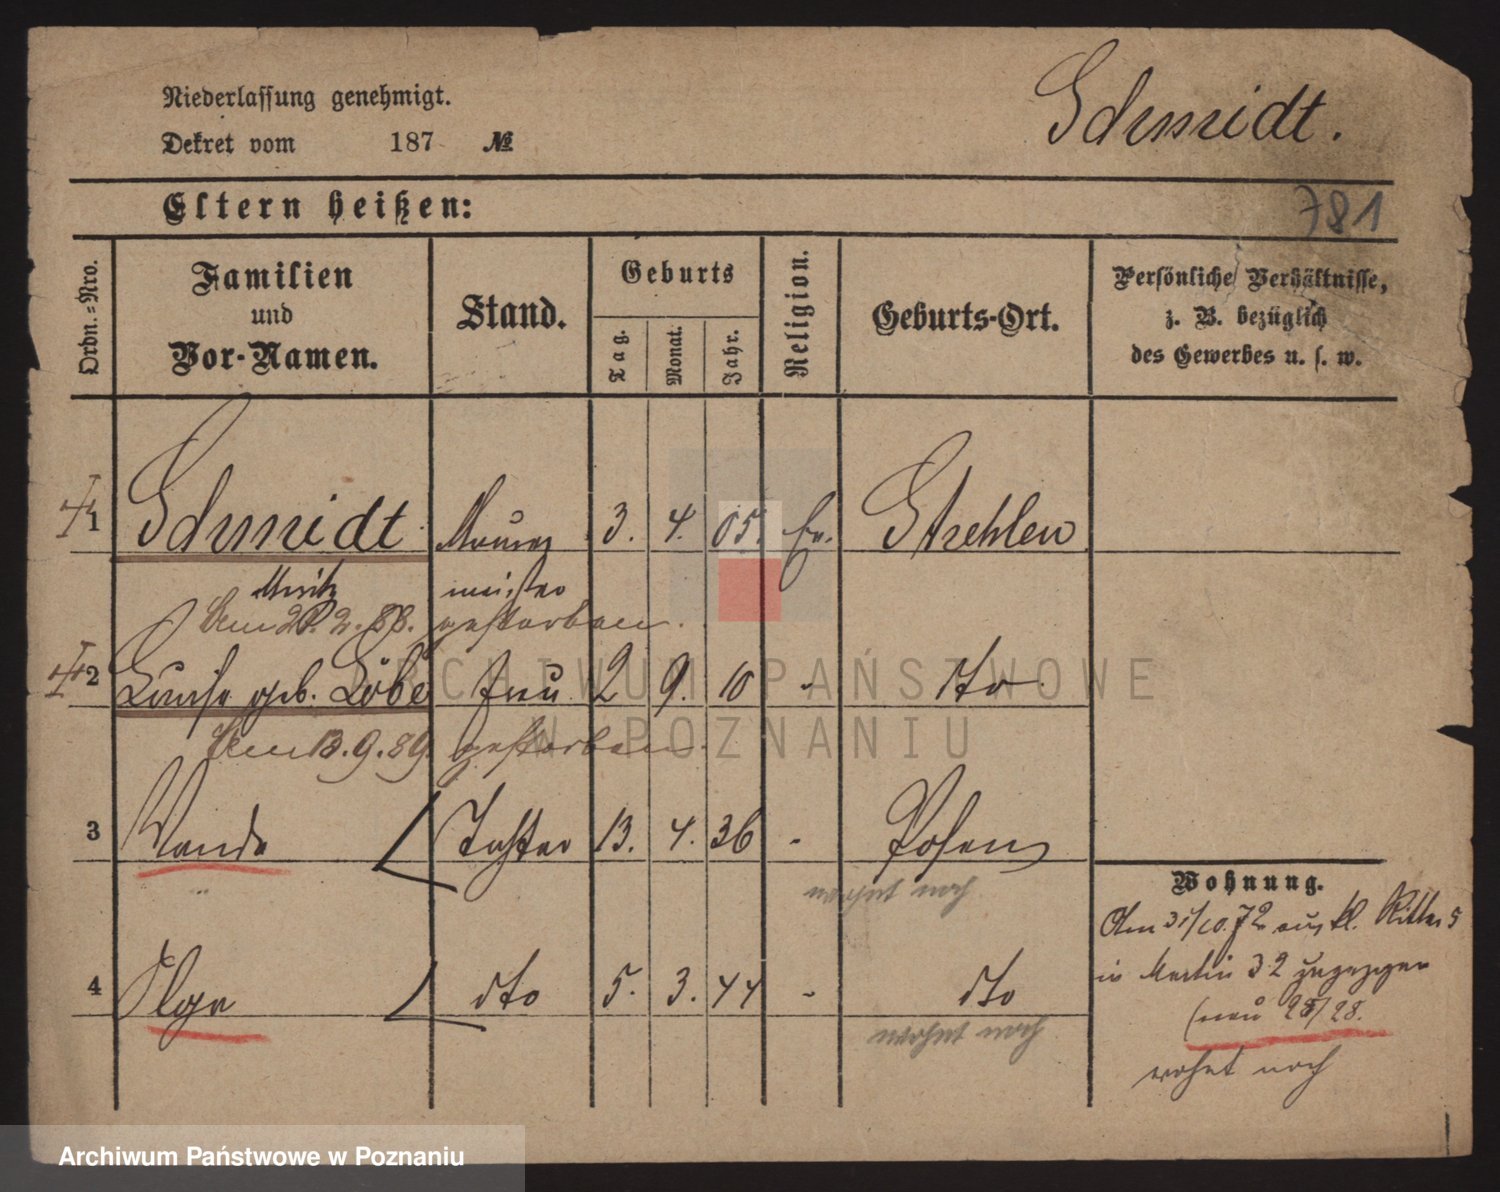 Niederlassung genehmigt.
Schmidt.
Dekret vom 187 №
Eltern heißen:
781
Ordn.-Nro.
Familien und Vor-Namen.
Stand.
Geburts
Tag.
Monat.
Jahr.
Religion.
Geburts-Ort.
Persönliche Verhältnisse,
z. B. bezüglich
des Gewerbes u. s. w.
1 Schmidt Maurer 3. 4. 05. Ev. Strehlen
Moritz meister
Am 2 . 2. 88. gestorben.
2 Louise geb. Löbe Frau 2 9. 10 - dto
Am 13. 9. 89. gestorben.
3 Wanda Tochter 13. 4. 36 - Posen
wohnt noch
Wohnung.
Am 31/10. 72 aus kl. Ritter 5
4 Olga dto 5. 3. 44 - dto
in Martin 32 zugezogen
(neu 28.
wohnt noch
wohnt noch
ARCHIWUM PAŃSTWOWE
W POZNANIU
Archiwum Państwowe w Poznaniu